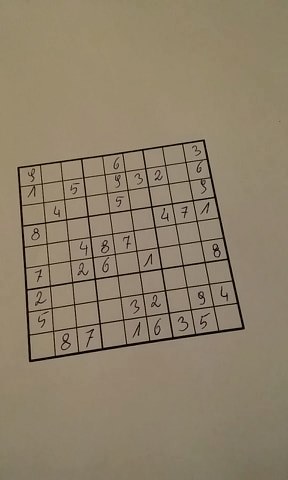 9 6 3
1 5 9 3 2 6
4 5 9
8 4 7 1
4 8 7
7 2 6 1 8
2
5 3 2 9 4
8 7 1 6 3 5